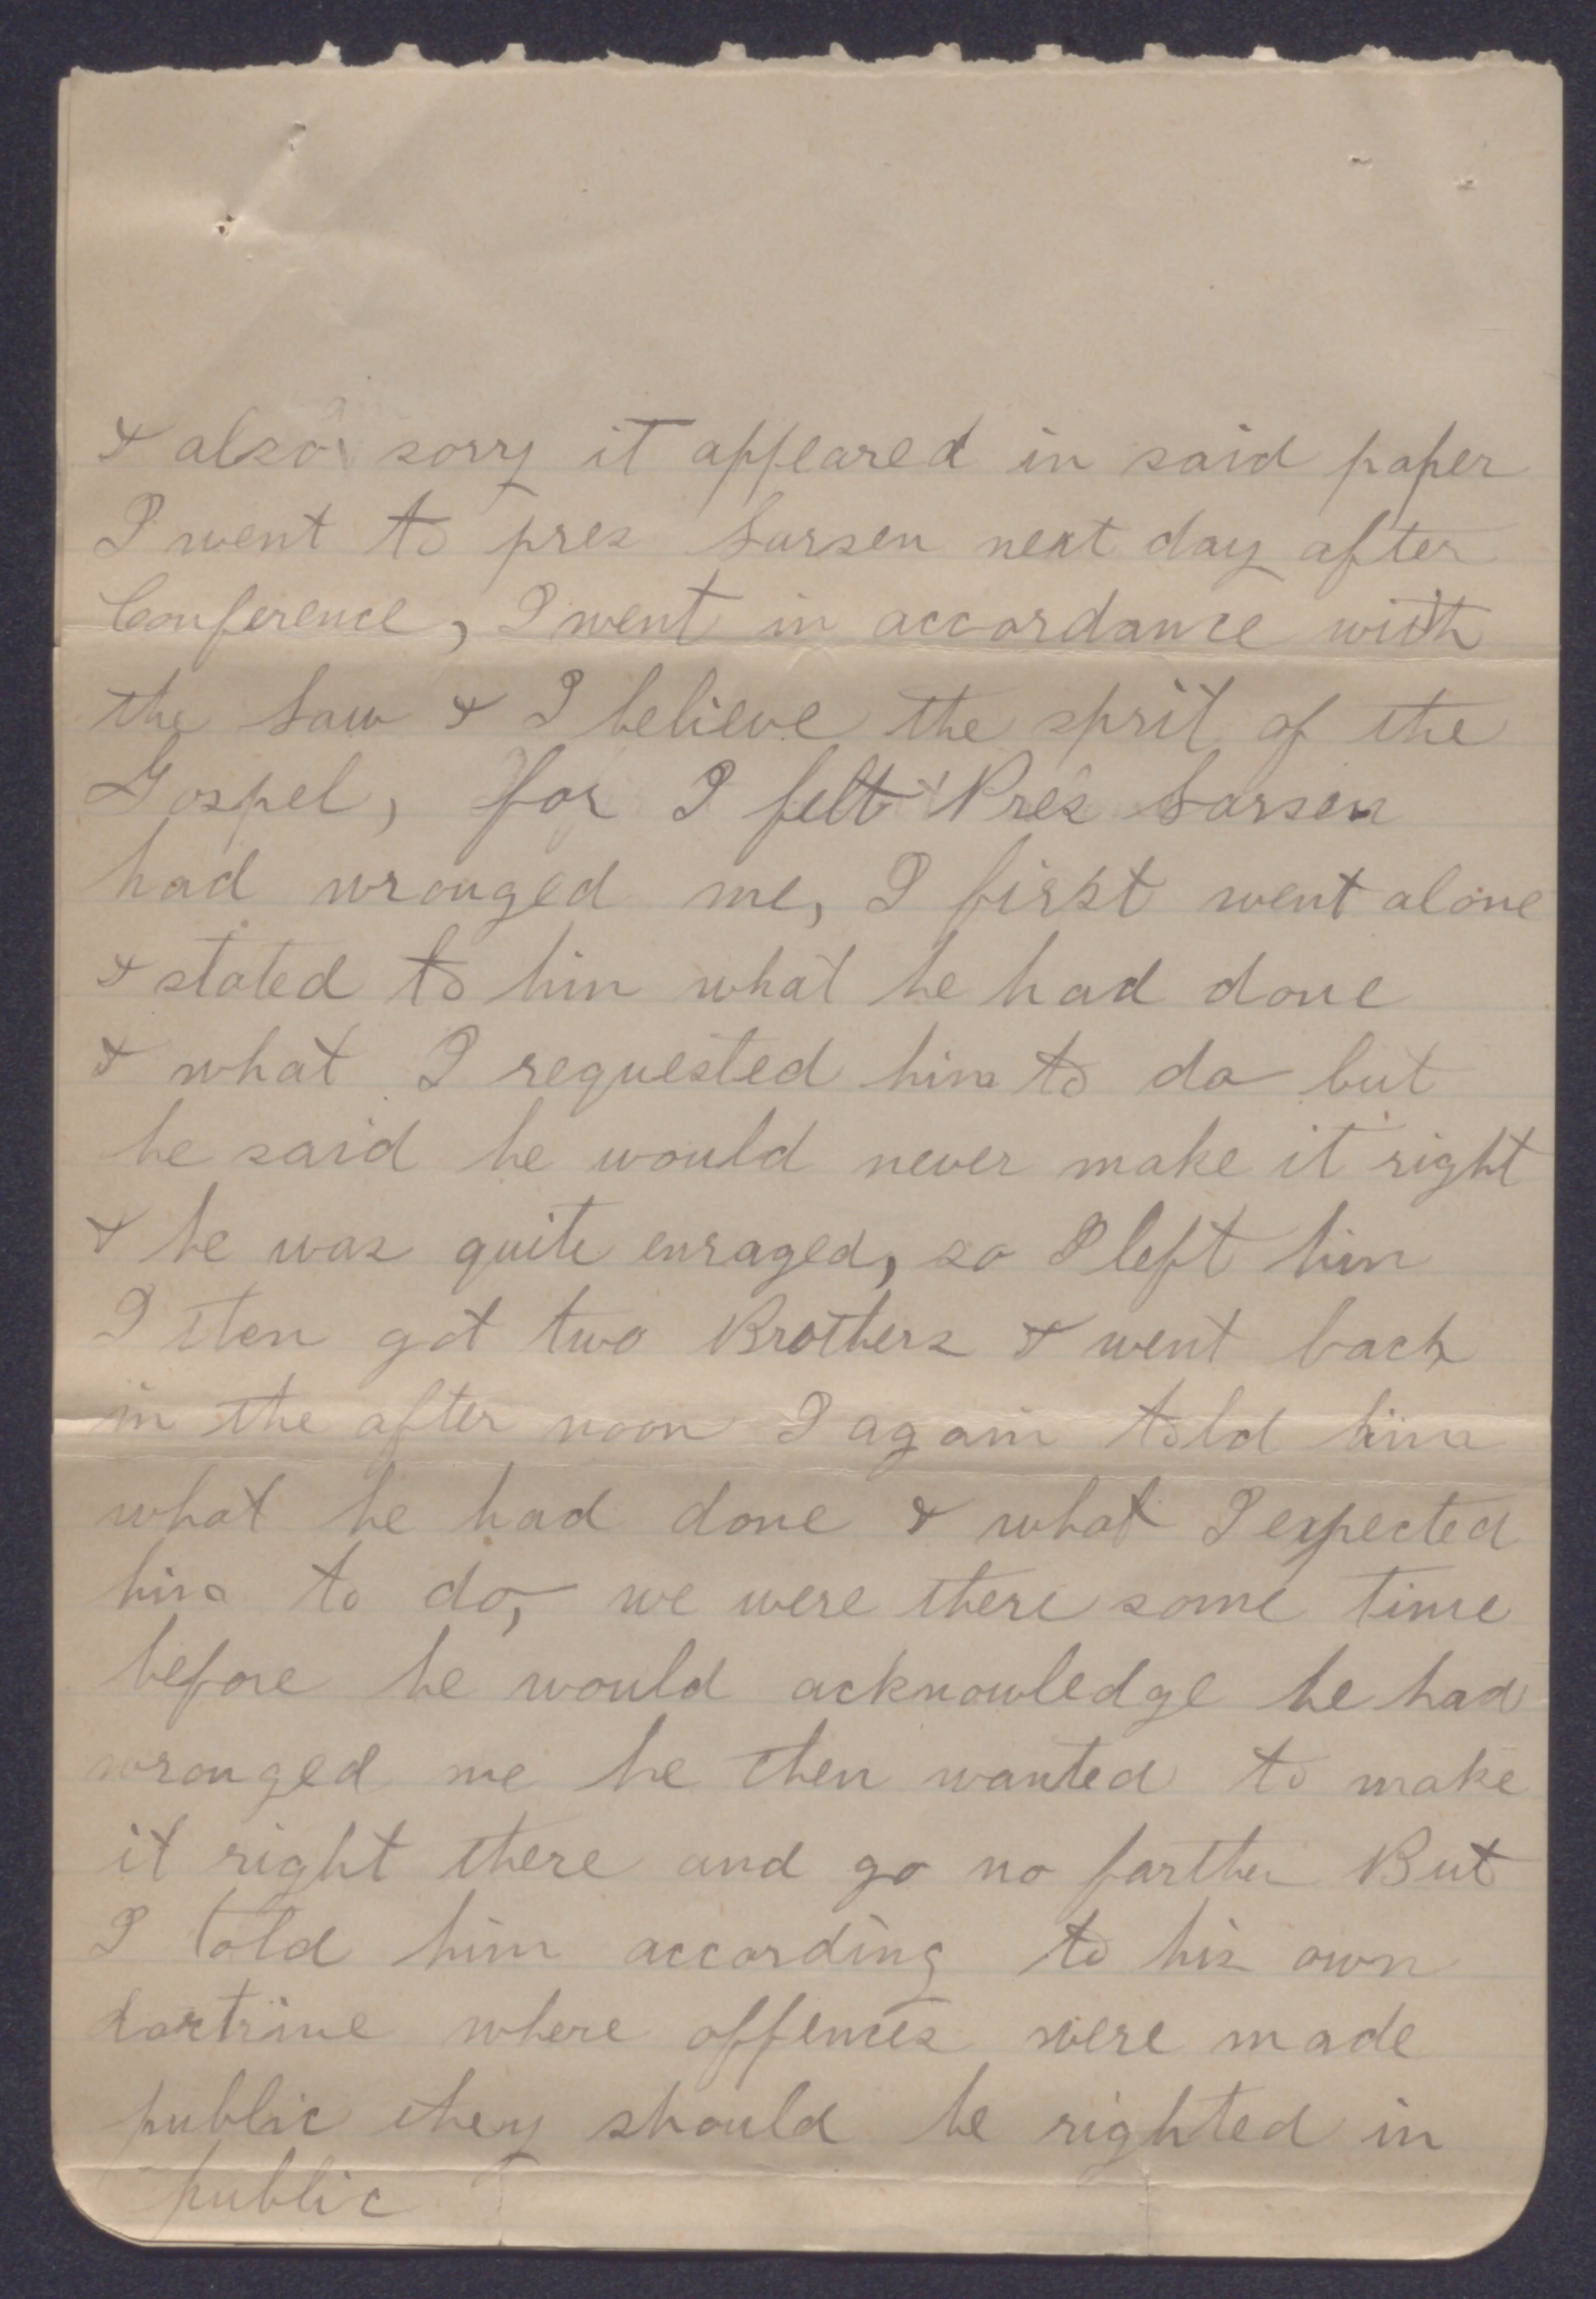 & also sorry it appeared in said paper
I went to pres Larsen next day after
Conference, I went in accordance with
the Law & I believe the sprit of the
Gospel, for I felt Pres Larsen
had wronged me, I first went alone
& stated to him what he had done
& what I requested him to do but
he said he would never make it right
& he was quite enraged, so I left him
I then got two Brothers & went back
in the after noon I again told him
what he had done & what I expected
him to do, we were there some time
before he would acknowledge he had
wronged me he then wanted to make
it right there and go no farther But
I told him according to his own
doctrine where offences were made
public they should be righted in
public